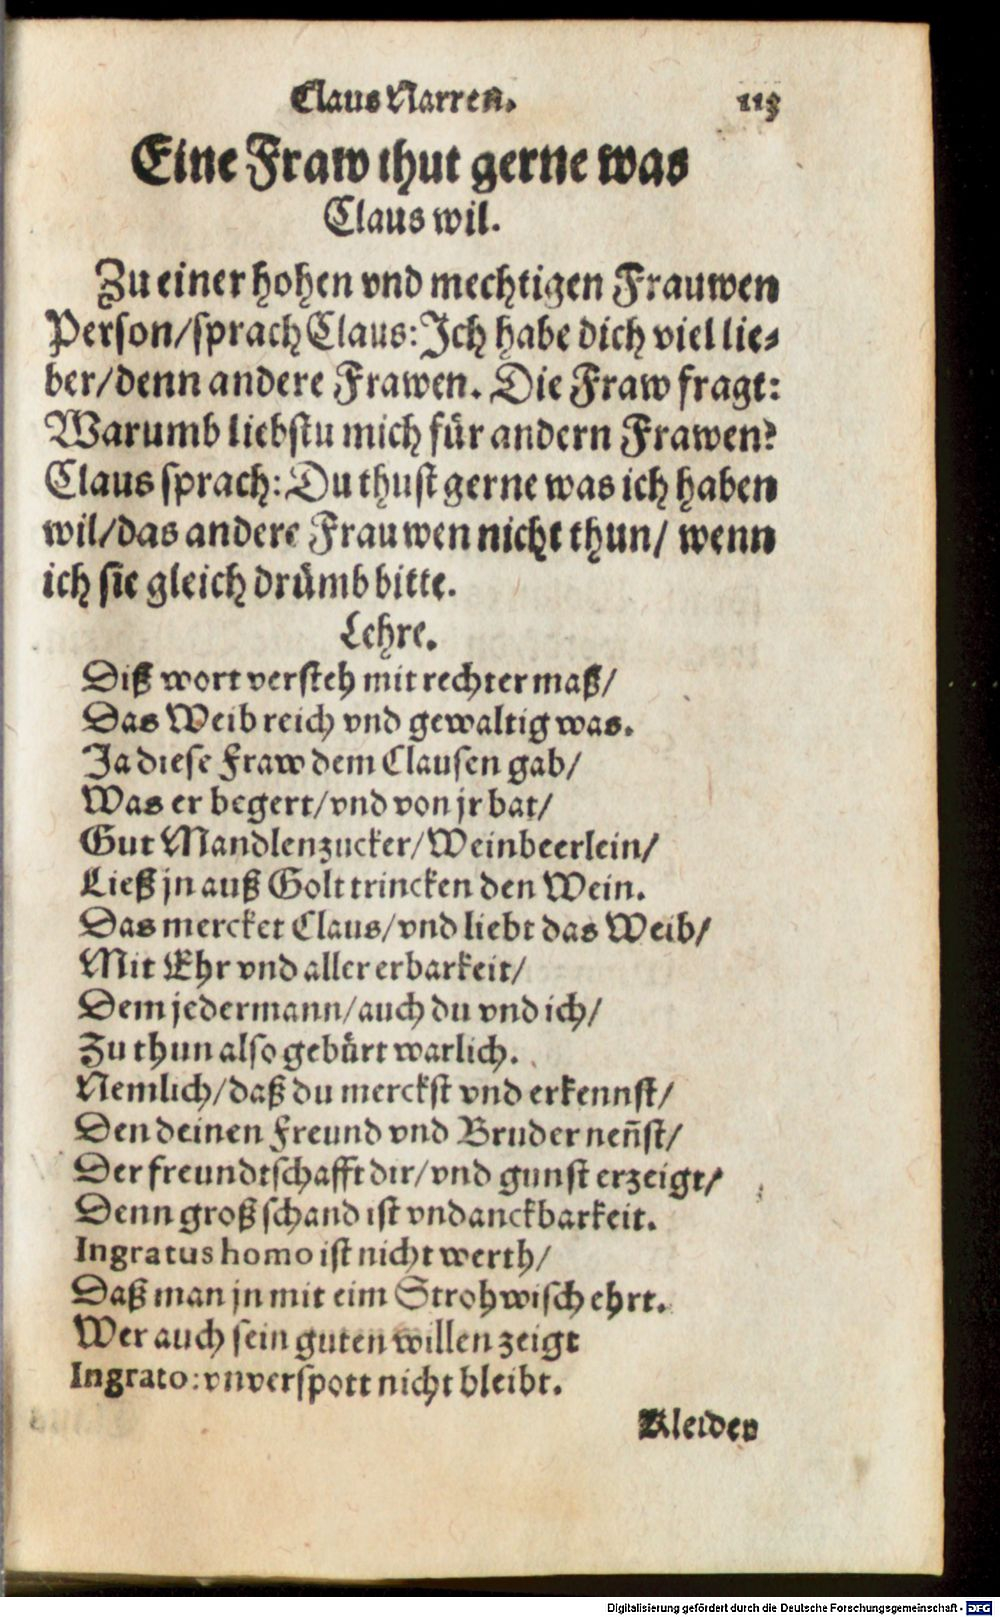 Claus Narren. 113
Eine Fraw thut gerne was
Claus wil.
Zu einer hohen vnd mechtigen Frauwen
Person/sprach Claus: Ich habe dich viel lie-
ber/denn andere Frawen. Die Fraw fragt:
Warumb liebstu mich für andern Frawen?
Claus sprach: Du thust gerne was ich haben
wil/das andere Frauwen nicht thun/ wenn
ich sie gleich drümb bitte.
Lehre.
Diß wort versteh mit rechter maß/
Das Weib reich vnd gewaltig was.
Ja diese Fraw dem Clausen gab/
Was er begert/vnd von jr bat/
Gut Mandlenzucker/Weinbeerlein/
Ließ jn auß Golt trincken den Wein.
Das mercket Claus/vnd liebt das Weib/
Mit Ehr vnd aller erbarkeit/
Dem jedermann/auch du vnd ich/
Zu thun also gebürt warlich.
Nemlich/daß du merckst vnd erkennst/
Den deinen Freund vnd Bruder neñst/
Der freundtschafft dir/vnd gunst erzeigt/
Denn groß schand ist vndanckbarkeit.
Ingratus homo ist nicht werth/
Daß man jn mit eim Strohwisch ehrt.
Wer auch sein guten willen zeigt
Ingrato: vnverspott nicht bleibt.
Kleider
Digitalisierung gefördert durch die Deutsche Forschungsgemeinschaft - DFG